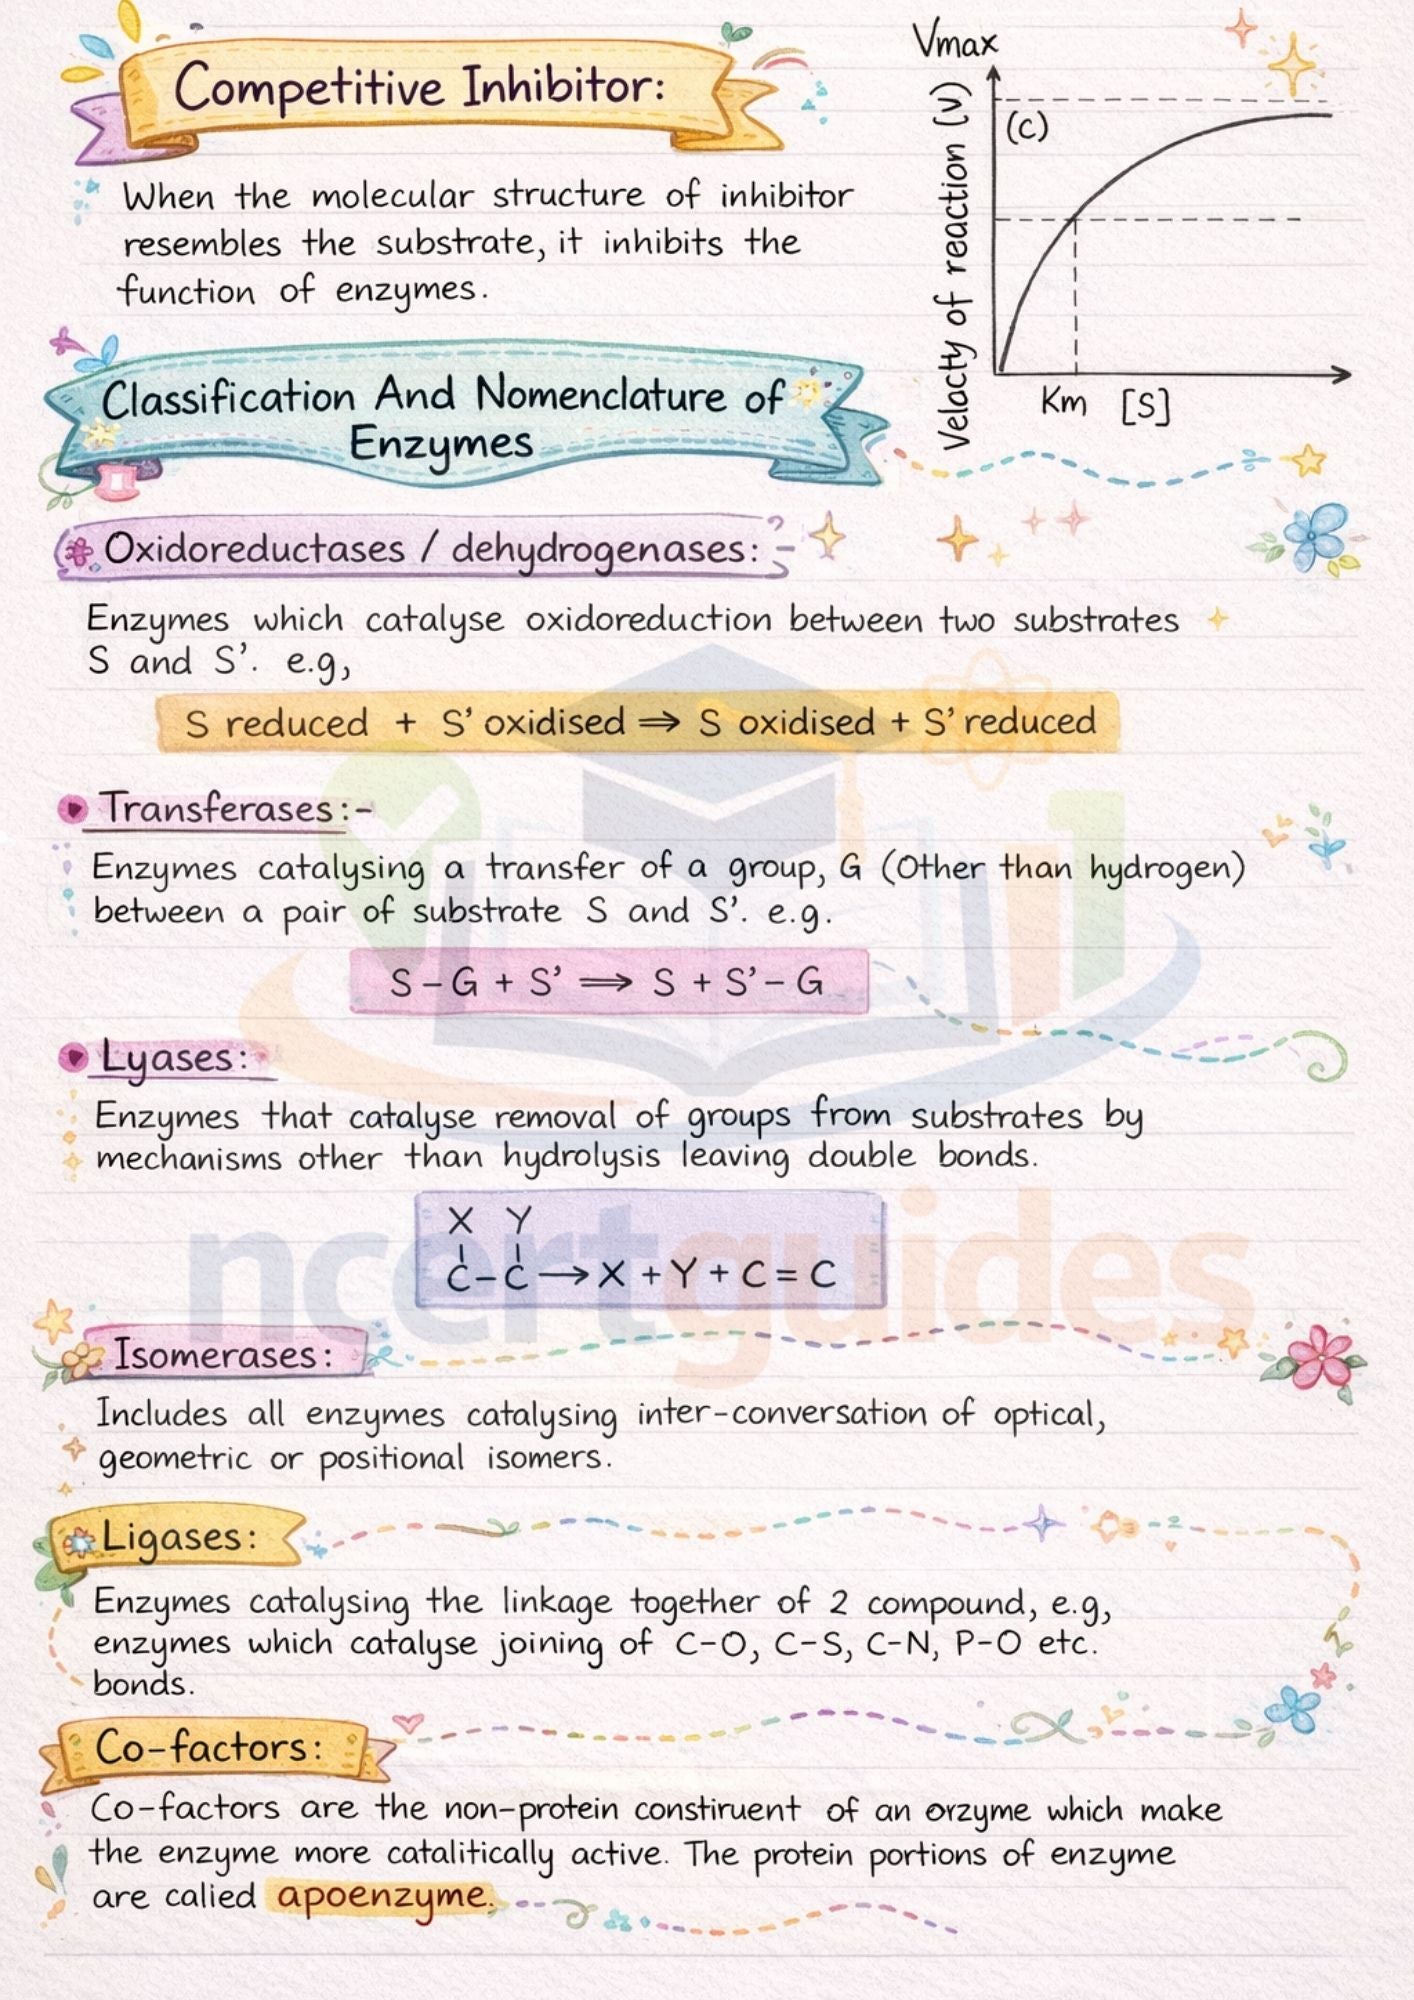 Competitive Inhibitor:
When the molecular structure of inhibitor
resembles the substrate, it inhibits the
function of enzymes.
Vmax
(C)
Velacty of reaction (V)
Km [S]
Classification And Nomenclature of
Enzymes
Oxidoreductases / dehydrogenases: -
Enzymes which catalyse oxidoreduction between two substrates
S and S’. e.g,
S reduced + S’ oxidised ⇒ S oxidised + S’ reduced
Transferases:-
Enzymes catalysing a transfer of a group, G (Other than hydrogen)
between a pair of substrate S and S’. e.g.
S – G + S’ ⟹ S + S’ – G
Lyases:
Enzymes that catalyse removal of groups from substrates by
mechanisms other than hydrolysis leaving double bonds.
X Y
C – C ⟶ X + Y + C = C
ncertguides
Isomerases:
Includes all enzymes catalysing inter-conversation of optical,
geometric or positional isomers.
Ligases:
Enzymes catalysing the linkage together of 2 compound, e.g,
enzymes which catalyse joining of C-O, C-S, C-N, P-O etc.
bonds.
Co-factors:
Co-factors are the non-protein constiruent of an orzyme which make
the enzyme more catalitically active. The protein portions of enzyme
are calied apoenzyme.